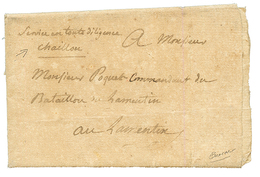 Service en toute diligence
A Monsieur
chaillou
Monsieur Poquet Commandant du
Bataillon du Lamentin
au Lamentin